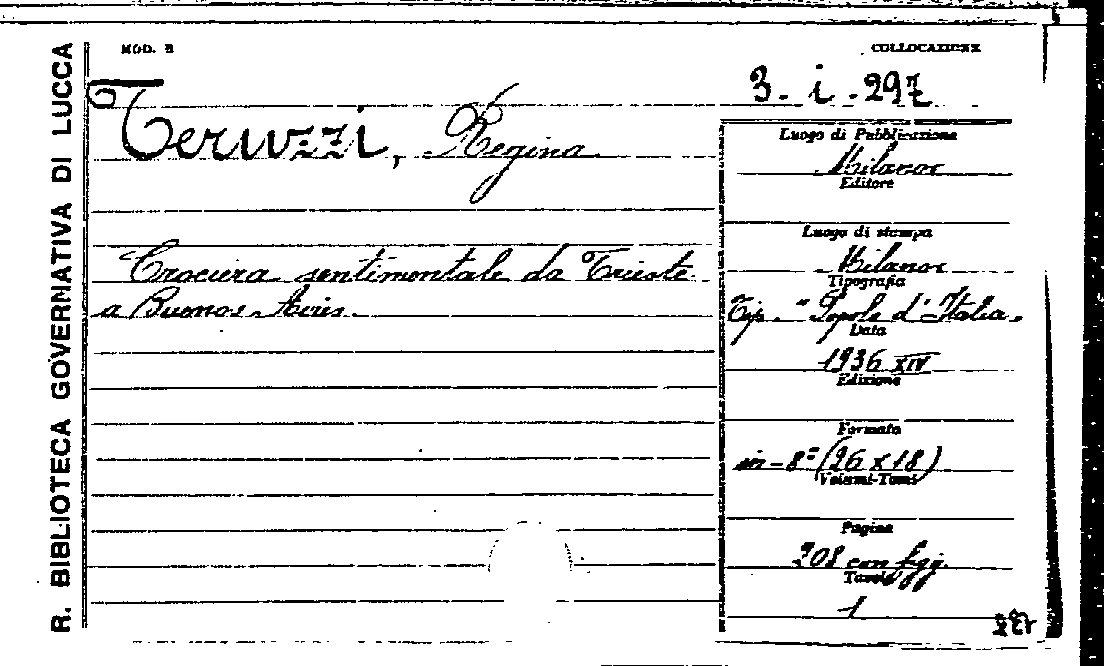 R. BIBLIOTECA GOVERNATIVA DI LUCCA
MOD. B
COLLOCAZIONE
3. i. 297
Teruzzi, Regina
Crociera sentimentale da Trieste
a Buenos Aires.
Luogo di Pubblicazione
Milano
Editore
Luogo di stampa
Milano
Tipografia
Tip. "Popolo d'Italia"
Data
1936 XIV
Edizione
Formato
in-8° (26 x 18)
Volumi-Tomi
Pagine
208 con figg.
Tavole
1